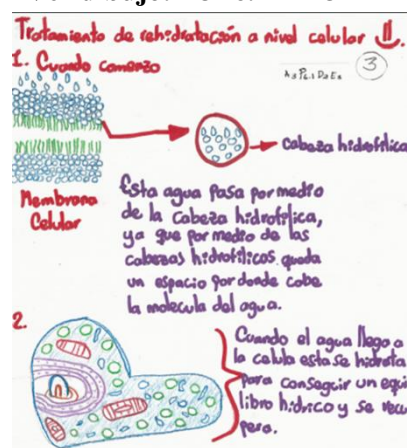 Tratamiento de rehidratación a nivel celular II.
1. Cuando comenzo
3
Cabeza hidrofílica
Membrana
Celular
Esta agua pasa por medio
de la Cabeza hidrofílica,
ya que por medio de las
cabezas hidrofílicos queda
un espacio por donde cabe
la molecula del agua.
2.
Cuando el agua llego a
la celula esta se hidrata
para conseguir un equi
librio hídrico y se recu
pera.